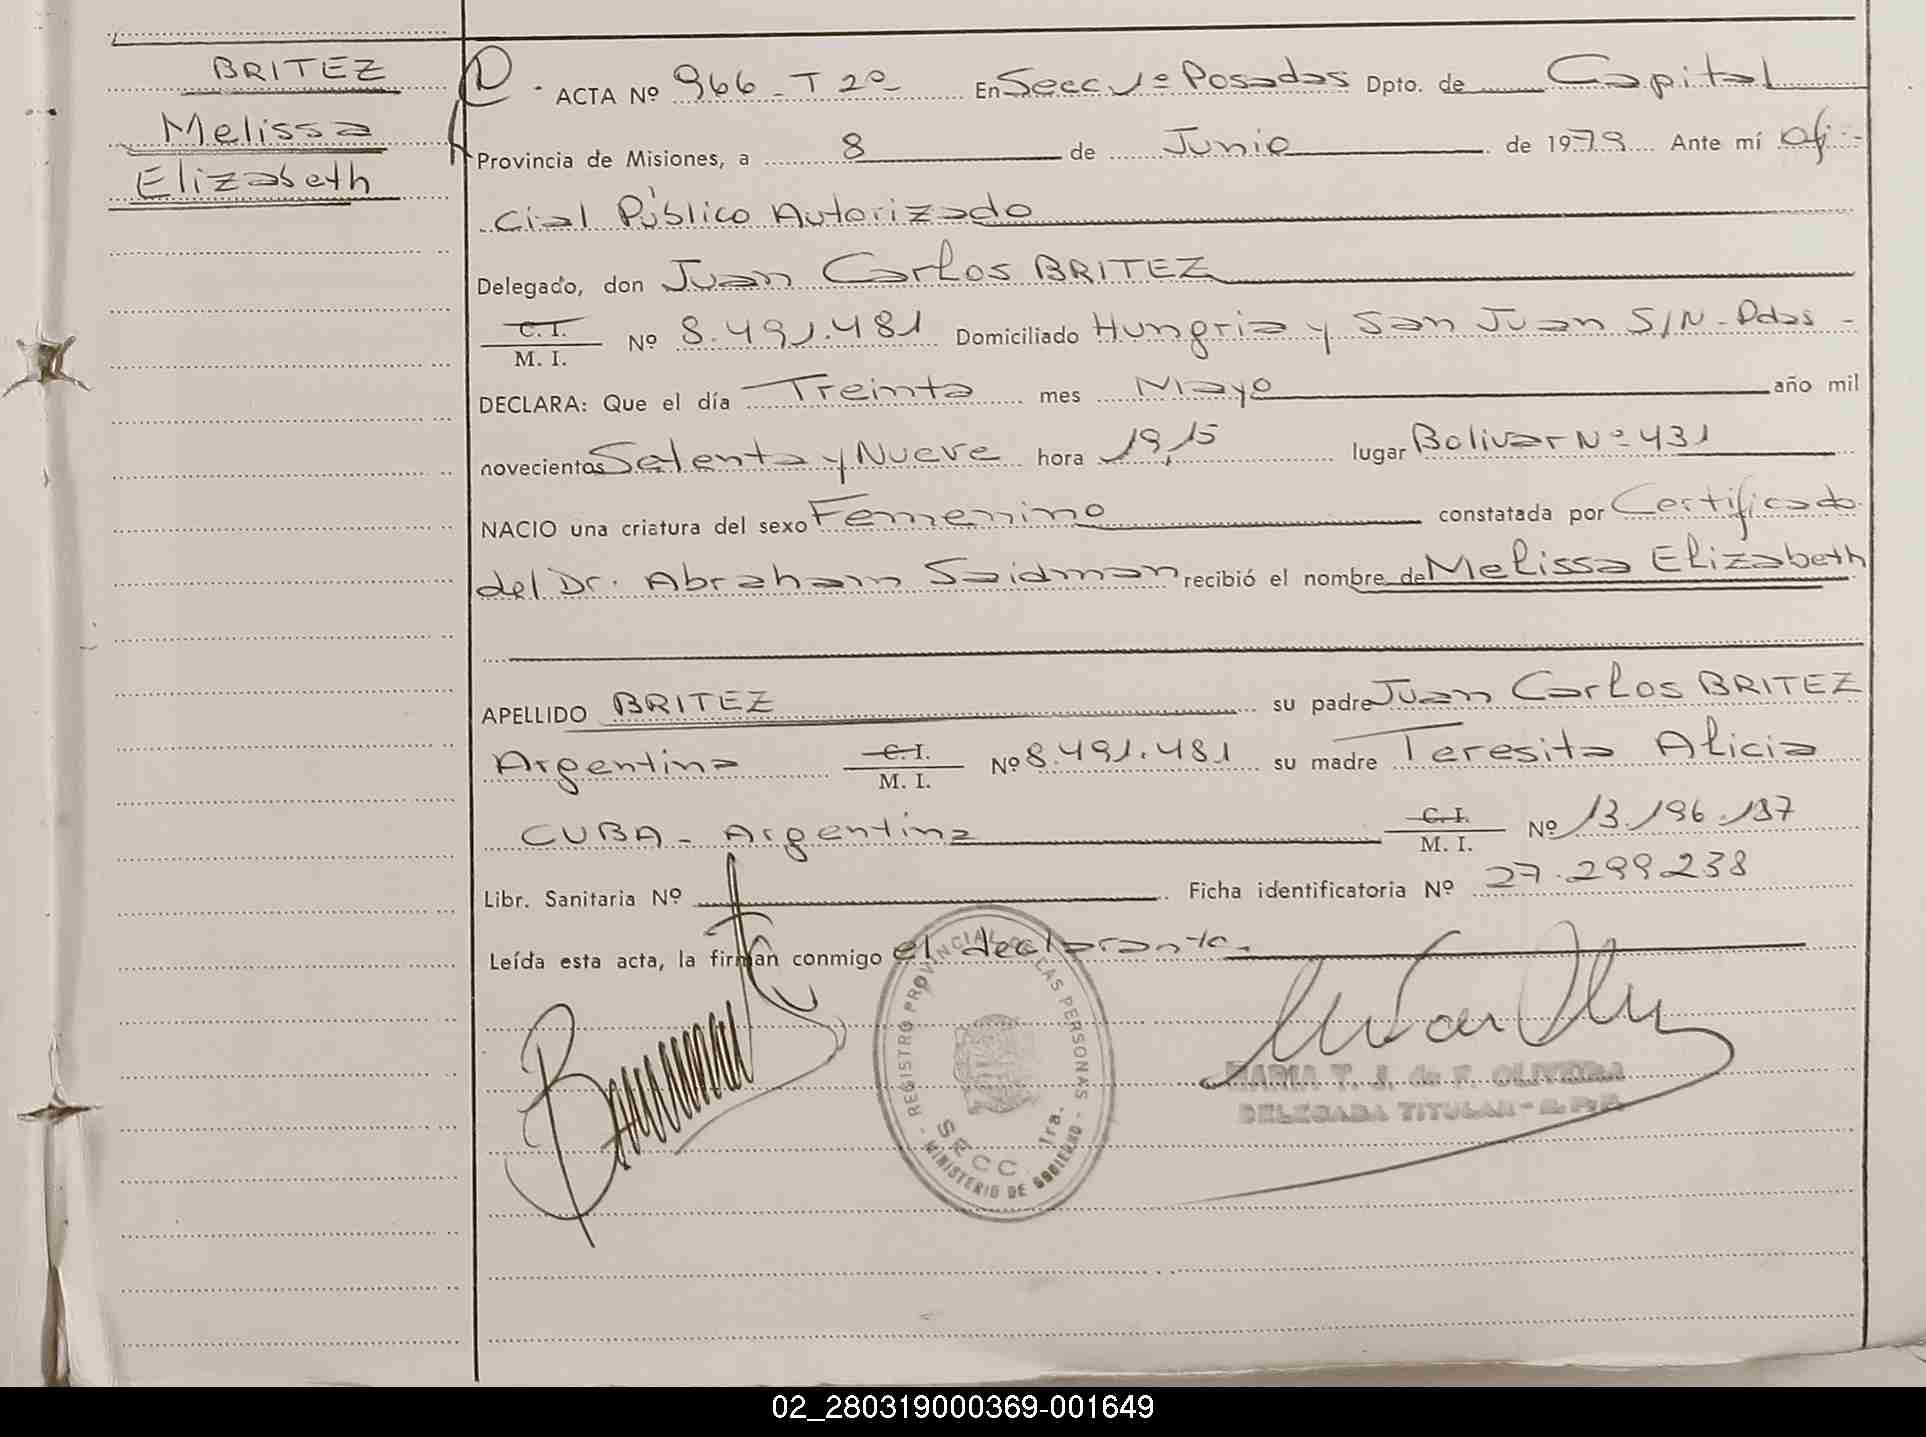 BRITEZ
Melissa
Elizabeth
ACTA Nº 966 - T 2º En Secc 1º Posadas Dpto. de Capital
Provincia de Misiones, a 8 de Junio de 1979 Ante mí Ofi-
cial Público Autorizado
Delegado, don Juan Carlos BRITEZ
C.I.
M. I. Nº 8.491.481 Domiciliado Hungria y San Juan S/N - Pdas -
DECLARA: Que el día Treinta mes Mayo año mil
novecientos Setenta y Nueve hora 19,15 lugar Bolivar Nº 431
NACIO una criatura del sexo Femenino constatada por Certificado
del Dr. Abraham Saidman recibió el nombre de Melissa Elizabeth
APELLIDO BRITEZ su padre Juan Carlos BRITEZ
Argentina C.I. M. I. Nº 8.491.481 su madre Teresita Alicia
CUBA - Argentina C.I. M. I. Nº 13.196.197
Libr. Sanitaria Nº Ficha identificatoria Nº 27.299.238
Leída esta acta, la firman conmigo el declarante.
- REGISTRO PROVINCIAL DE LAS PERSONAS -
SECC. 1ra.
MINISTERIO DE GOBIERNO
MARIA T. J. de F. OLIVEIRA
DELEGADA TITULAR - R.P.P.
02_280319000369-001649